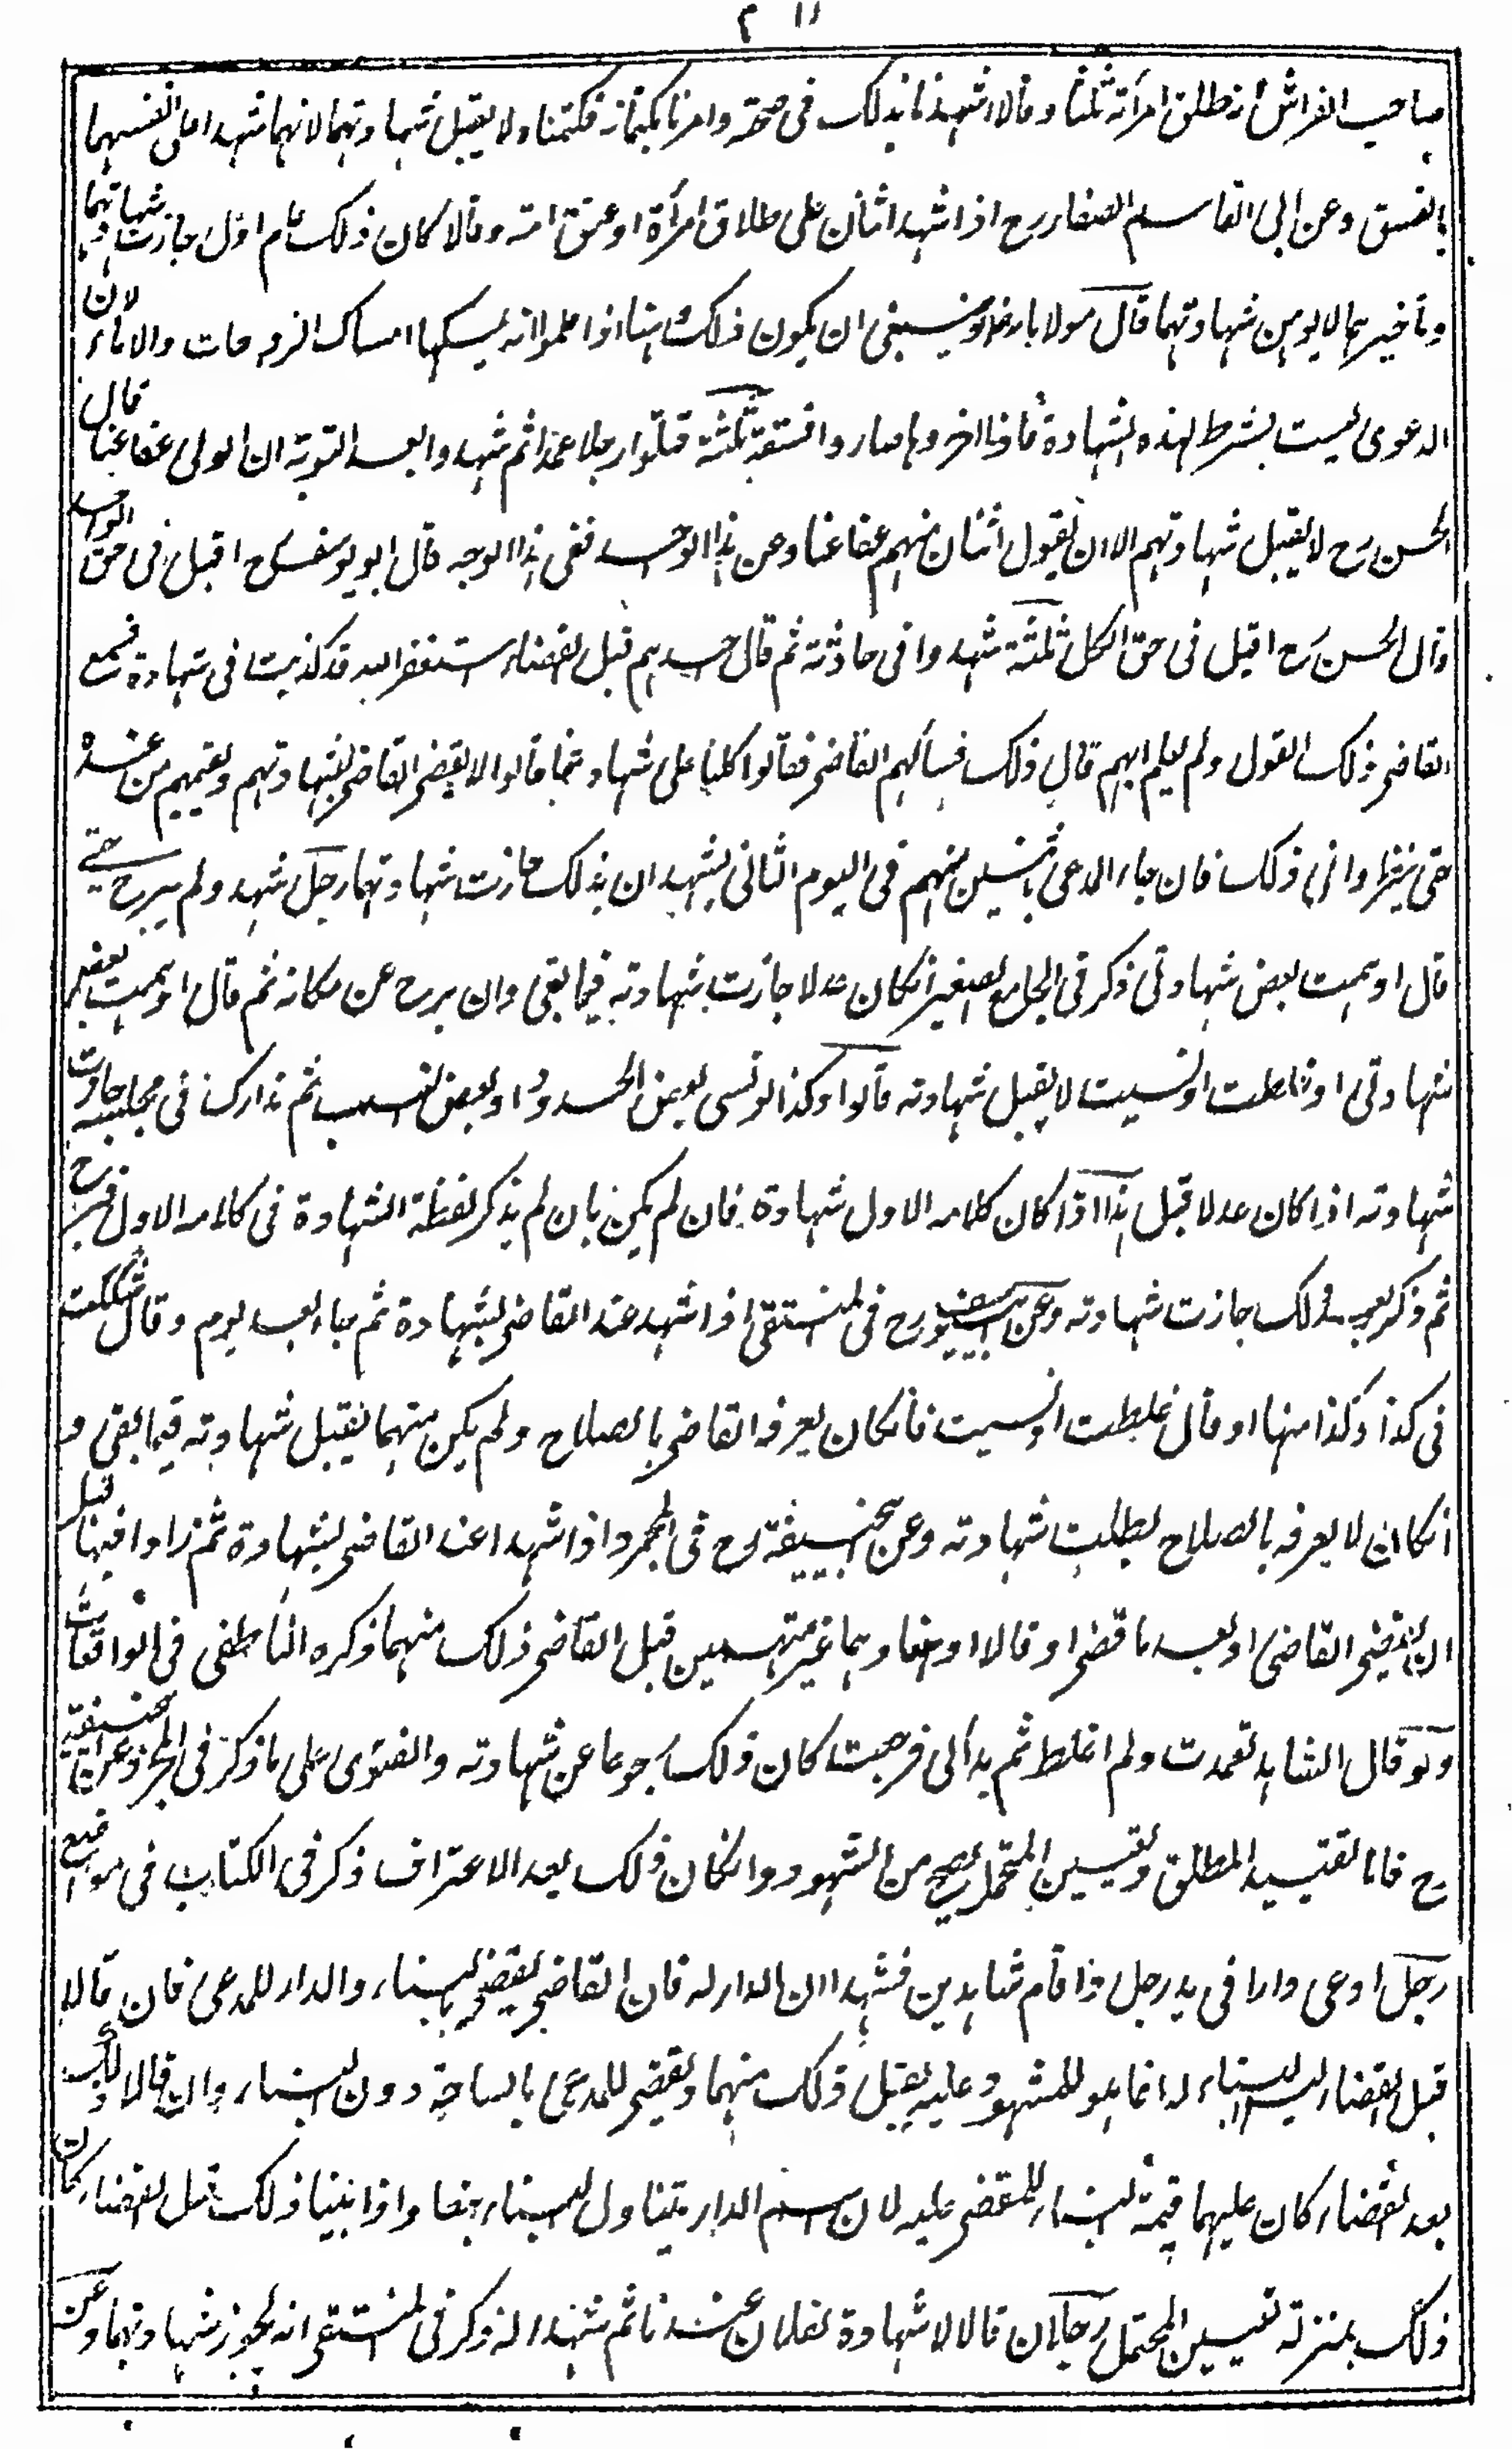 صاحب الفراش انه طلق امرأته ثلثا وقالا اشهدنا بذلك في صحته وامرنا بكتمانه فكتمنا ولا يقبل شهادتهما لانهما شهدا على انفسهما
بالفسق وعن ابى القاسم الصفار رح اذا شهد اثنان على طلاق امرأة او عتق امته وقالا كان ذلك عام اول جازت شهادتهما
وتأخيرهما لا يوهن شهادتهما قال مولانا رض وينبغى ان يكون ذلك وهنا اذا علموا انه يمسكها امساك الزوجات والاماء لان
الدعوى ليست بشرط لهذه الشهادة فاذا اخروها صاروا فسقة ثلثة قتلوا رجلا عمدا ثم شهدوا بعد التوبة ان الولى عفا عنا قال
الحسن رح لا يقبل شهادتهم الا ان يقول اثنان منهم عفا عنا وعن هذا الواحد ففى هذا الوجه قال ابو يوسف رح اقبل فى حق الواحد
وقال الحسن رح اقبل فى حق الكل ثلثة شهدوا فى حادثة ثم قال احدهم قبل القضاء استغفر الله قد كذبت فى شهادة فسمع
القاضى ذلك القول ولم يعلم ايهم قال ذلك فسألهم القاضى فقالوا كلنا على شهادتنا قالوا لا يقضى القاضى بشهادتهم ويقيمهم من عنده
حتى ينظروا فى ذلك فان جاء المدعى باثنين منهم فى اليوم الثانى يشهدان بذلك جازت شهادتهما رجل شهد ولم يبرح حتى
قال اوهمت بعض شهادتى ذكر فى الجامع الصغير انكان عدلا جازت شهادته فيما بقى وان برح عن مكانه ثم قال اوهمت بعض
شهادتى او غلطت او نسيت لا يقبل شهادته قالوا وكذا لو نسى بعض الحدود او بعض النسب ثم تدارك فى مجلسه جازت
شهادته اذا كان عدلا قبل هذا اذا كان كلامه الاول شهادة فان لم يكن بان لم يذكر لفظة الشهادة فى كلامه الاول فبرح
ثم ذكر بعد ذلك جازت شهادته وعن ابى يوسف رح فى المنتقى اذا شهد عند القاضى بشهادة ثم جاء بعد يوم وقال شككت
فى كذا وكذا منها او قال غلطت او نسيت فانكان يعرفه القاضى بالصلاح ولم يكن متهما يقبل شهادته فيما بقى و
انكان لا يعرفه بالصلاح بطلت شهادته وعن ابى حنيفة رح فى المجرد اذا شهدا عند القاضى بشهادة ثم زادا فيها قبل
ان يقضى القاضى او بعد ما قضى او قالا اوهمنا وهما غير متهمين قبل القاضى ذلك منهما ذكره الناطفى فى الواقعات
ولو قال الشاهد تعمدت ولم اغلط ثم بدا لى فرجعت كان ذلك رجوعا عن شهادته والفتوى على ما ذكر فى المجرد عن ابى حنيفة
رح فاما تقييد المطلق وتعيين المحتمل يصح من الشهود وانكان ذلك بعد الاعتراف ذكر فى الكتاب فى مواضع
رجل ادعى دارا فى يد رجل واقام شاهدين فشهدا ان الدار له فان القاضى يقضى بالبناء والدار للمدعى فان قالا
قبل القضاء ليس البناء له انما هو للمشهود عليه يقبل ذلك منهما ويقضى للمدعى بالساحة دون البناء وان قالا ذلك
بعد القضاء كان عليهما قيمة البناء للمقضى عليه لان اسم الدار يتناول البناء تبعا واذا بينا ذلك قبل القضاء كان
ذلك بمنزلة تعيين المحتمل رجلان قالا لا شهادة لفلان عندنا ثم شهدا له ذكر فى المنتقى انه يجوز شهادتهما وعن